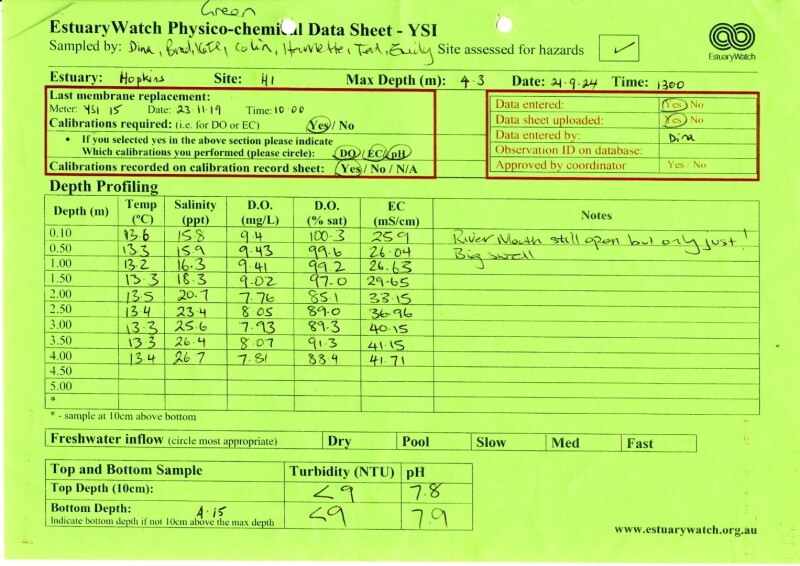 Green
EstuaryWatch Physico-chemical Data Sheet - YSI
Sampled by: Dina, Brad, Kate, Colin, Harriette, Ted, Emily Site assessed for hazards ✓
EstuaryWatch
Estuary: Hopkins Site: H1 Max Depth (m): 4.3 Date: 21.9.24 Time: 1300
Last membrane replacement:
Meter: YSI 15 Date: 23.11.19 Time: 10.00
Calibrations required: (i.e. for DO or EC) Yes / No
• If you selected yes in the above section please indicate
Which calibrations you performed (please circle): DO / EC / pH
Calibrations recorded on calibration record sheet: Yes / No / N/A
Data entered: Yes / No
Data sheet uploaded: Yes / No
Data entered by: Dina
Observation ID on database:
Approved by coordinator Yes / No
Depth Profiling
Depth (m) Temp (ºC) Salinity (ppt) D.O. (mg/L) D.O. (% sat) EC (mS/cm) Notes
0.10 13.6 15.8 9.4 100.3 25.9 River Mouth still open but only just!
0.50 13.3 15.9 9.43 99.6 26.04 Big swell
1.00 13.2 16.3 9.41 99.2 26.63
1.50 13.3 18.3 9.02 97.0 29.65
2.00 13.5 20.7 7.76 85.1 33.15
2.50 13.4 23.4 8.05 89.0 36.96
3.00 13.3 25.6 7.93 89.3 40.15
3.50 13.3 26.4 8.07 91.3 41.15
4.00 13.4 26.7 7.81 88.4 41.71
4.50
5.00
*
* - sample at 10cm above bottom
Freshwater inflow (circle most appropriate) Dry Pool Slow Med Fast
Top and Bottom Sample Turbidity (NTU) pH
Top Depth (10cm): <9 7.8
Bottom Depth: 4.15 <9 7.9
Indicate bottom depth if not 10cm above the max depth
www.estuarywatch.org.au